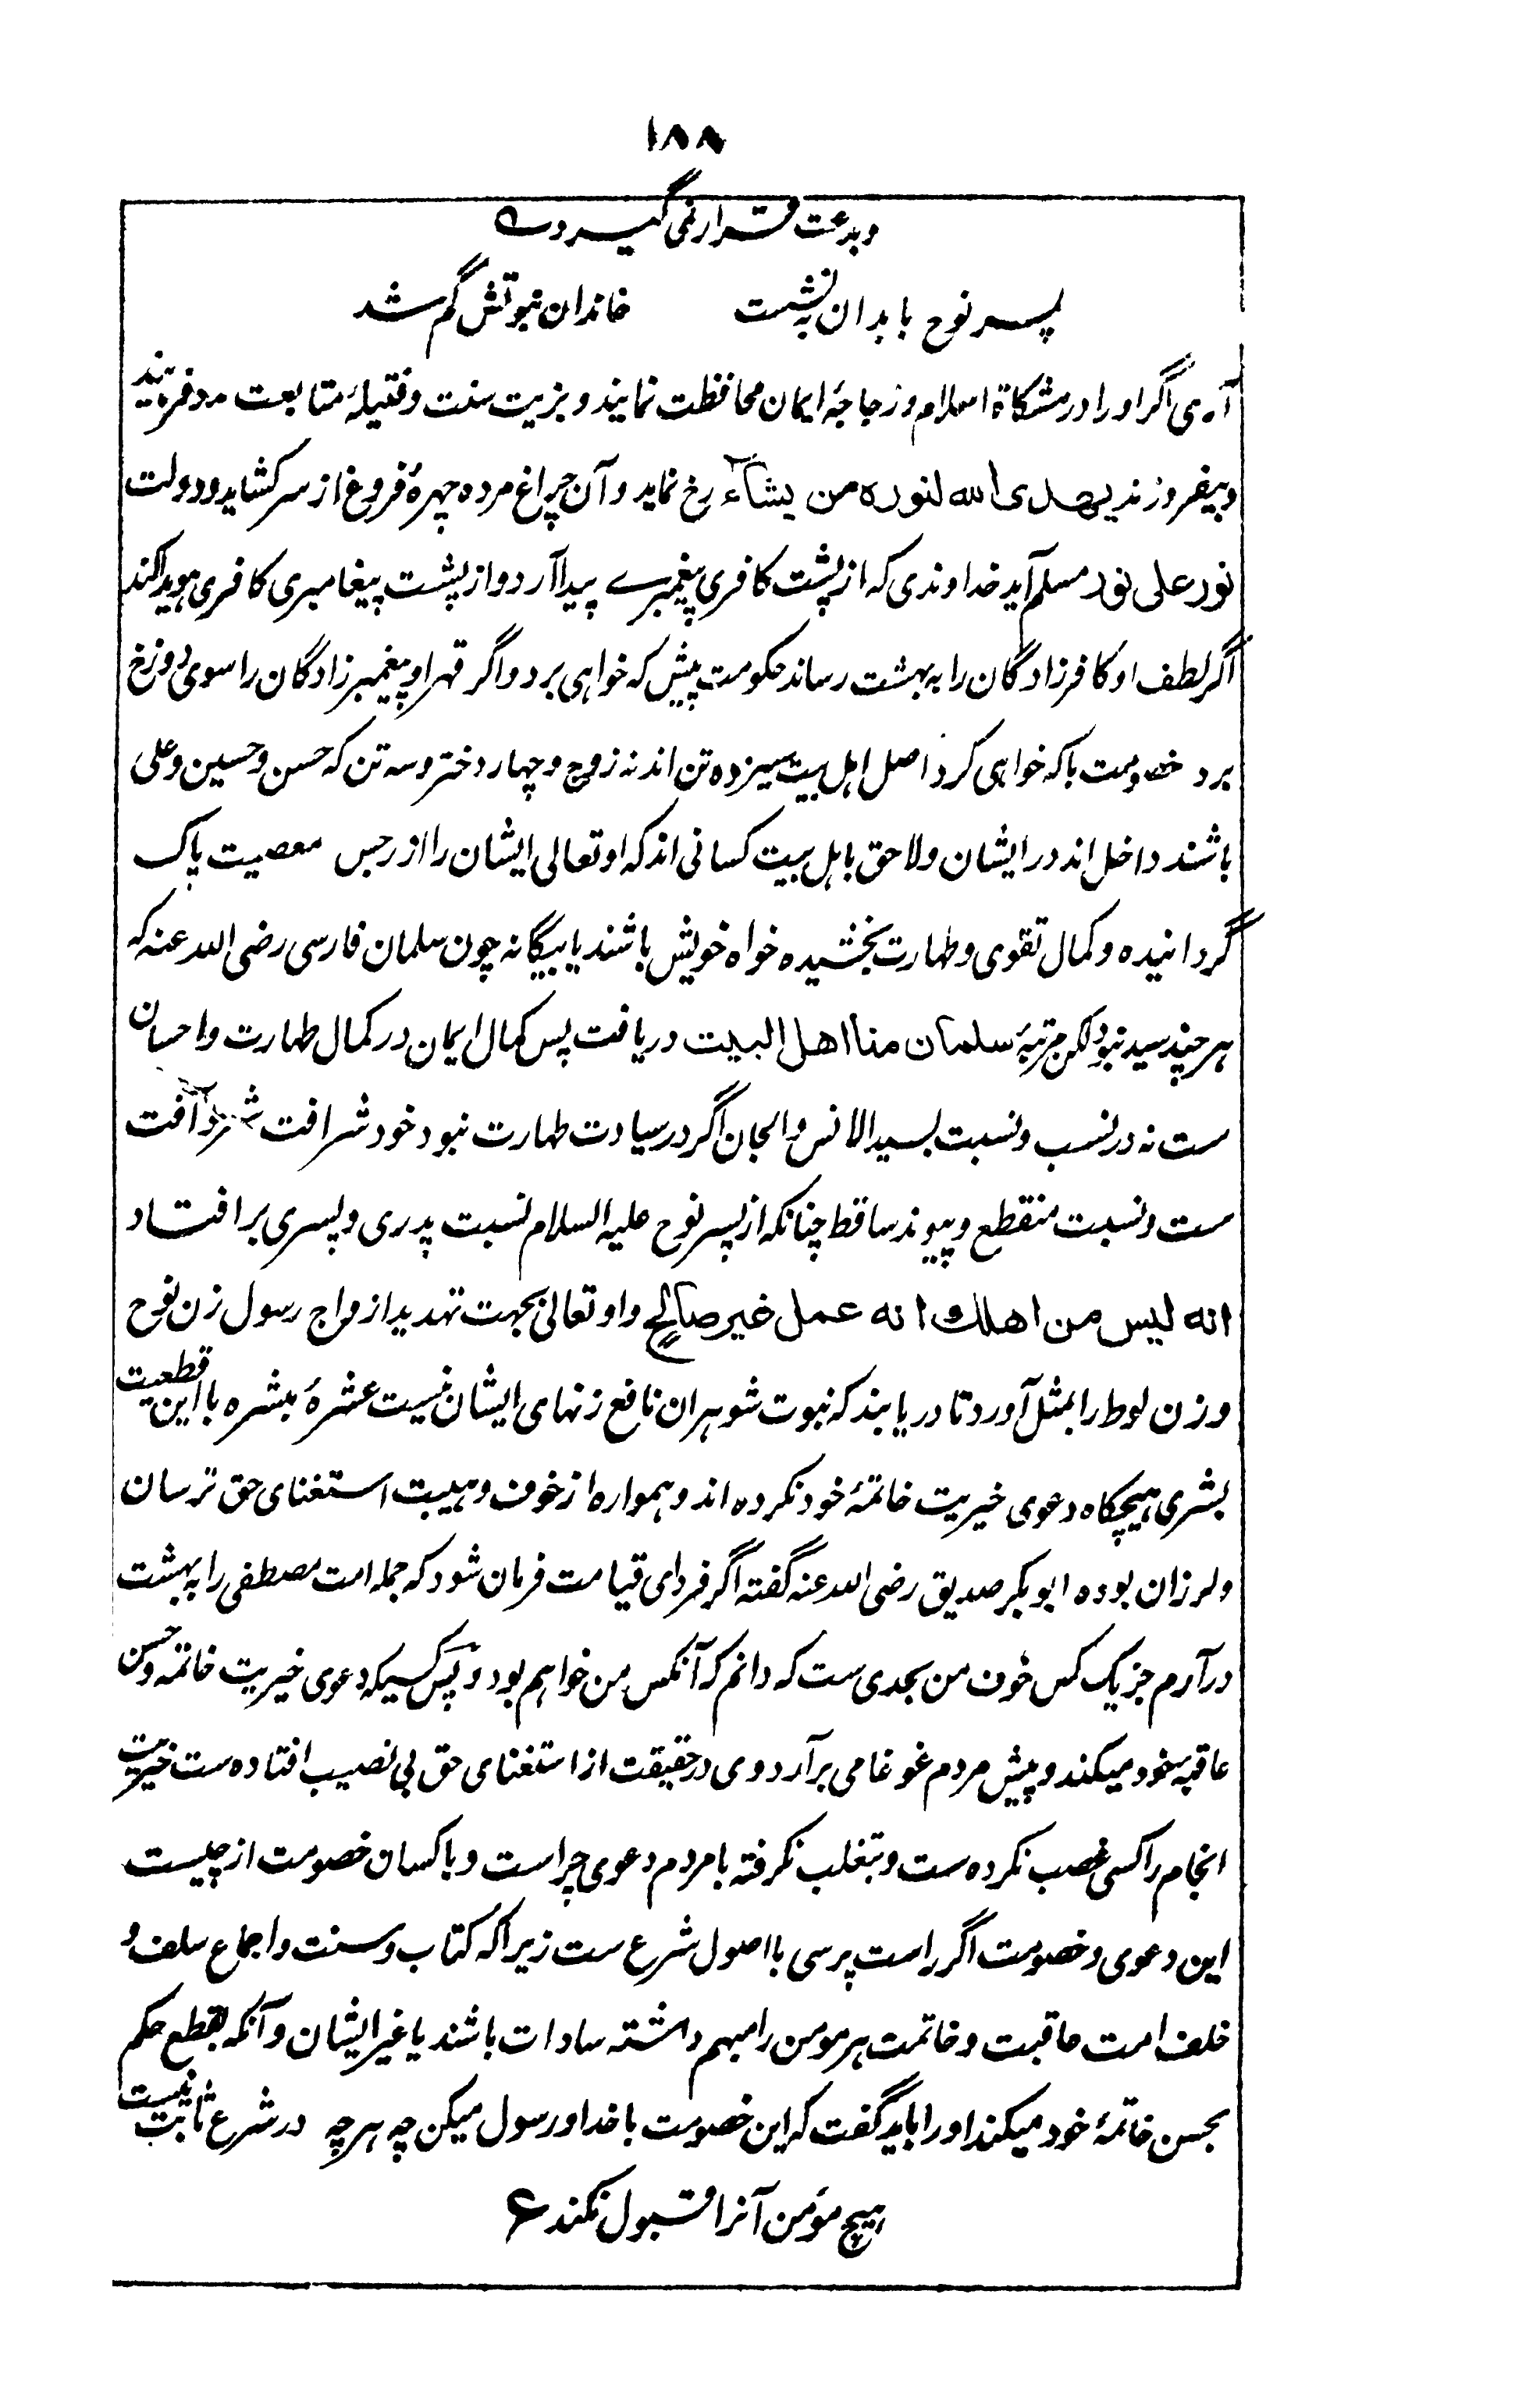 ۱۸۸
وبدعت قرار نمی گیرد ے
پسر نوح با بدان بنشست خاندان نبوتش گم شد
آری اگر او را در مشکاة اسلام و زجاجۀ ایمان محافظت نمایند و بزیت سنت و فتیلۀ متابعت مدد فرمایند
و بیفروزند یهدی الله لنوره من یشآء رخ نماید و آن چراغ مرده چهرۀ فروغ از سر کشاید و دولت
نور علی نور مسلم آید خداوندی که از پشت کافری پیغمبرے پیدا آرد و از پشت پیغامبری کافری هویدا کند
اگر لطف او کافرزادگان را به بهشت رساند حکومت پیش که خواهی برد و اگر قهر او پیغمبرزادگان را سوی دوزخ
برد خصومت با که خواهی کرد اصل اهل بیت سیزده تن اند نه زوج و چهار دختر و سه تن که حسن و حسین و علی
باشند داخل اند در ایشان و لاحق باهل بیت کسانی اند که او تعالی ایشان را از رجس معصیت پاک
گردانیده و کمال تقوی و طهارت بخشیده خواه خویش باشند یا بیگانه چون سلمان فارسی رضی الله عنه که
هر چند سید نبود لکن مرتبۀ سلمان منا اهل البیت دریافت پس کمال ایمان در کمال طهارت و احسان
ست نه در نسب و نسبت بسید الانس و الجان اگر در سیادت طهارت نبود خود شرافت شر و آفت
ست و نسبت منقطع و پیوند ساقط چنانکه از پسر نوح علیه السلام نسبت پدری و پسری بر افتاد
انه لیس من اهلك انه عمل غیر صالح و او تعالی بجهت تهدید ازواج رسول زن نوح
و زن لوط را بمثل آورد تا دریابند که نبوت شوهران نافع زنهای ایشان نیست عشرۀ مبشره با این قطعیت
بشری هیچگاه دعوی خیریت خاتمۀ خود نکرده اند و همواره از خوف و هیبت استغنای حق ترسان
و لرزان بوده ابوبکر صدیق رضی الله عنه گفته اگر فردای قیامت فرمان شود که جمله امت مصطفی را ببهشت
در آرم جز یک کس خوف من بحدی ست که دانم که آنکس من خواهم بود و پس کسیکه دعوی خیریت خاتمه و حسن
عاقبه خود میکند و پیش مردم غوغا می برآرد وی در حقیقت از استغنای حق بی نصیب افتاده ست خیریت
انجام را کسی غصب نکرده ست و بتغلب نگرفته با مردم دعوی چراست و با کسان خصومت از چیست
این دعوی و خصومت اگر راست پرسی با اصول شرع ست زیرا که کتاب و سنت و اجماع سلف و
خلف امت عاقبت و خاتمت هر مومن را مبهم داشته سادات باشند یا غیر ایشان و آنکه بقطع حکم
بحسن خاتمۀ خود میکند او را باید گفت که این خصومت با خدا و رسول میکن چه هر چه در شرع ثابت نیست
هیچ مؤمن آنرا قبول نکند ع